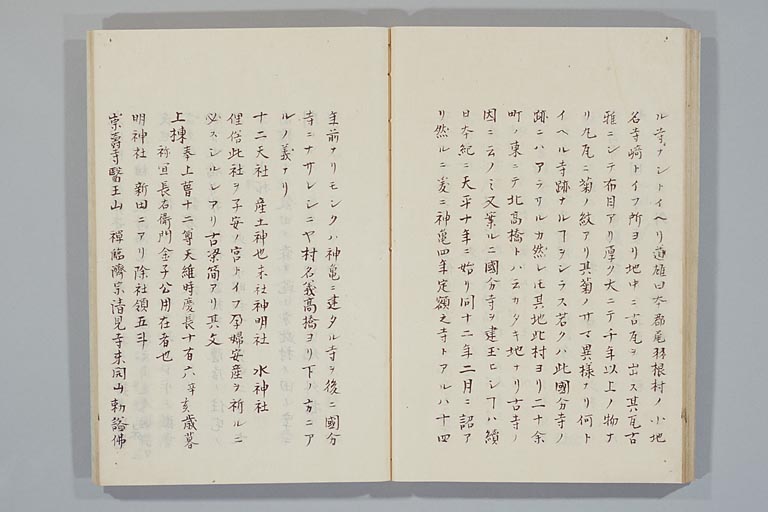 ル寺ナントイヘリ道雄曰本郡尾羽根村ノ小地
名寺崎トイフ所ヨリ地中ニ古瓦ヲ出ス其瓦古
雅ニシテ布目アリ厚ク大ニテ千年以上ノ物ナ
リ丸瓦ニ菊ノ紋アリ其菊ノサマ異様ナリ何ト
イヘル寺跡ナルヿヲシラス若クハ此國分寺ノ
跡ニハアラサルカ然レ𪜈其地此村ヨリ二十余
町ノ東ニテ北高橋トハ云カタキ地ナリ古寺ノ
因ニ云ノミ又案ルニ國分寺ヲ建玉ヒシヿハ續
日本紀ニ天平十年ニ始リ同十二年二月ニ詔ア
リ然ルニ爰ニ神亀四年定額之寺トアルハ十四
年前ナリモシクハ神亀ニ建タル寺ヲ後ニ國分
寺ニナサレシニヤ村名義高橋ヨリ下ノ方ニア
ルノ義ナリ
十二天社 産土神也末社神明社 水神社
俚俗此社ヲ子安ノ宮トイフ孕婦安産ヲ祈ルニ
必スシルシアリ古梁簡アリ其文
上棟 奉上葺十二尊天維時慶長十百六辛亥歳暮
祢宜長右衛門金子公用在者也
明神社 新田ニアリ除社領五斗
崇壽寺醫王山 禪臨濟宗清見寺末開山勅謚佛